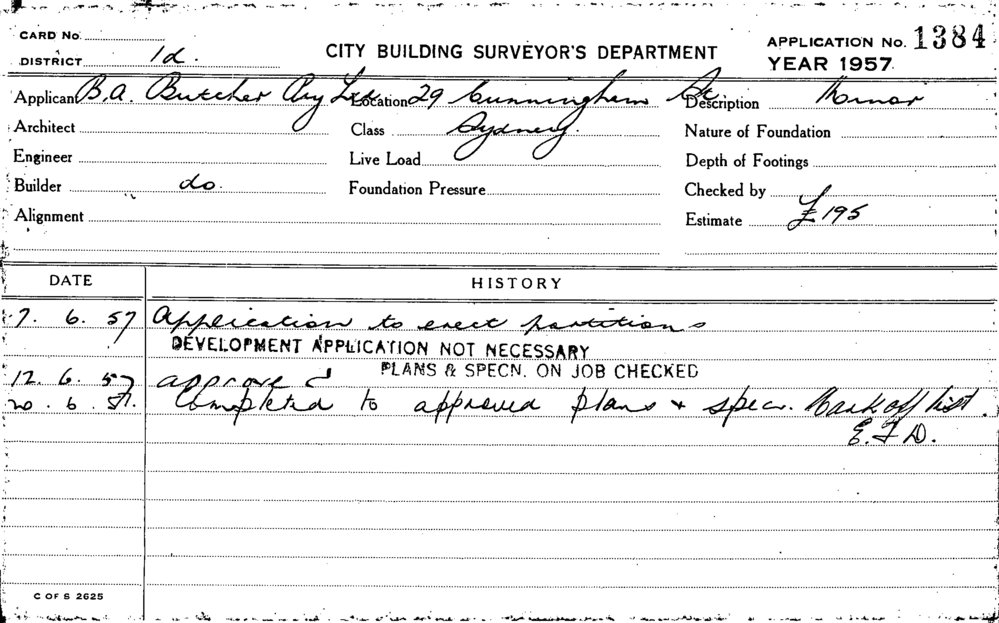 CARD No.
DISTRICT 1d.
CITY BUILDING SURVEYOR'S DEPARTMENT
APPLICATION No. 1384
YEAR 1957
Applicant B.A. Butcher Pty Ltd Location 29 Cunningham St. Description Minor
Architect Class Sydney. Nature of Foundation
Engineer Live Load Depth of Footings
Builder do. Foundation Pressure Checked by
Alignment Estimate £195
DATE HISTORY
7. 6. 57 Application to erect partitions
DEVELOPMENT APPLICATION NOT NECESSARY
PLANS & SPECN. ON JOB CHECKED
12. 6. 57 approved
20. 6. 57. Completed to approved plans + specn. Mark off list.
E.F.D.
C OF S 2625